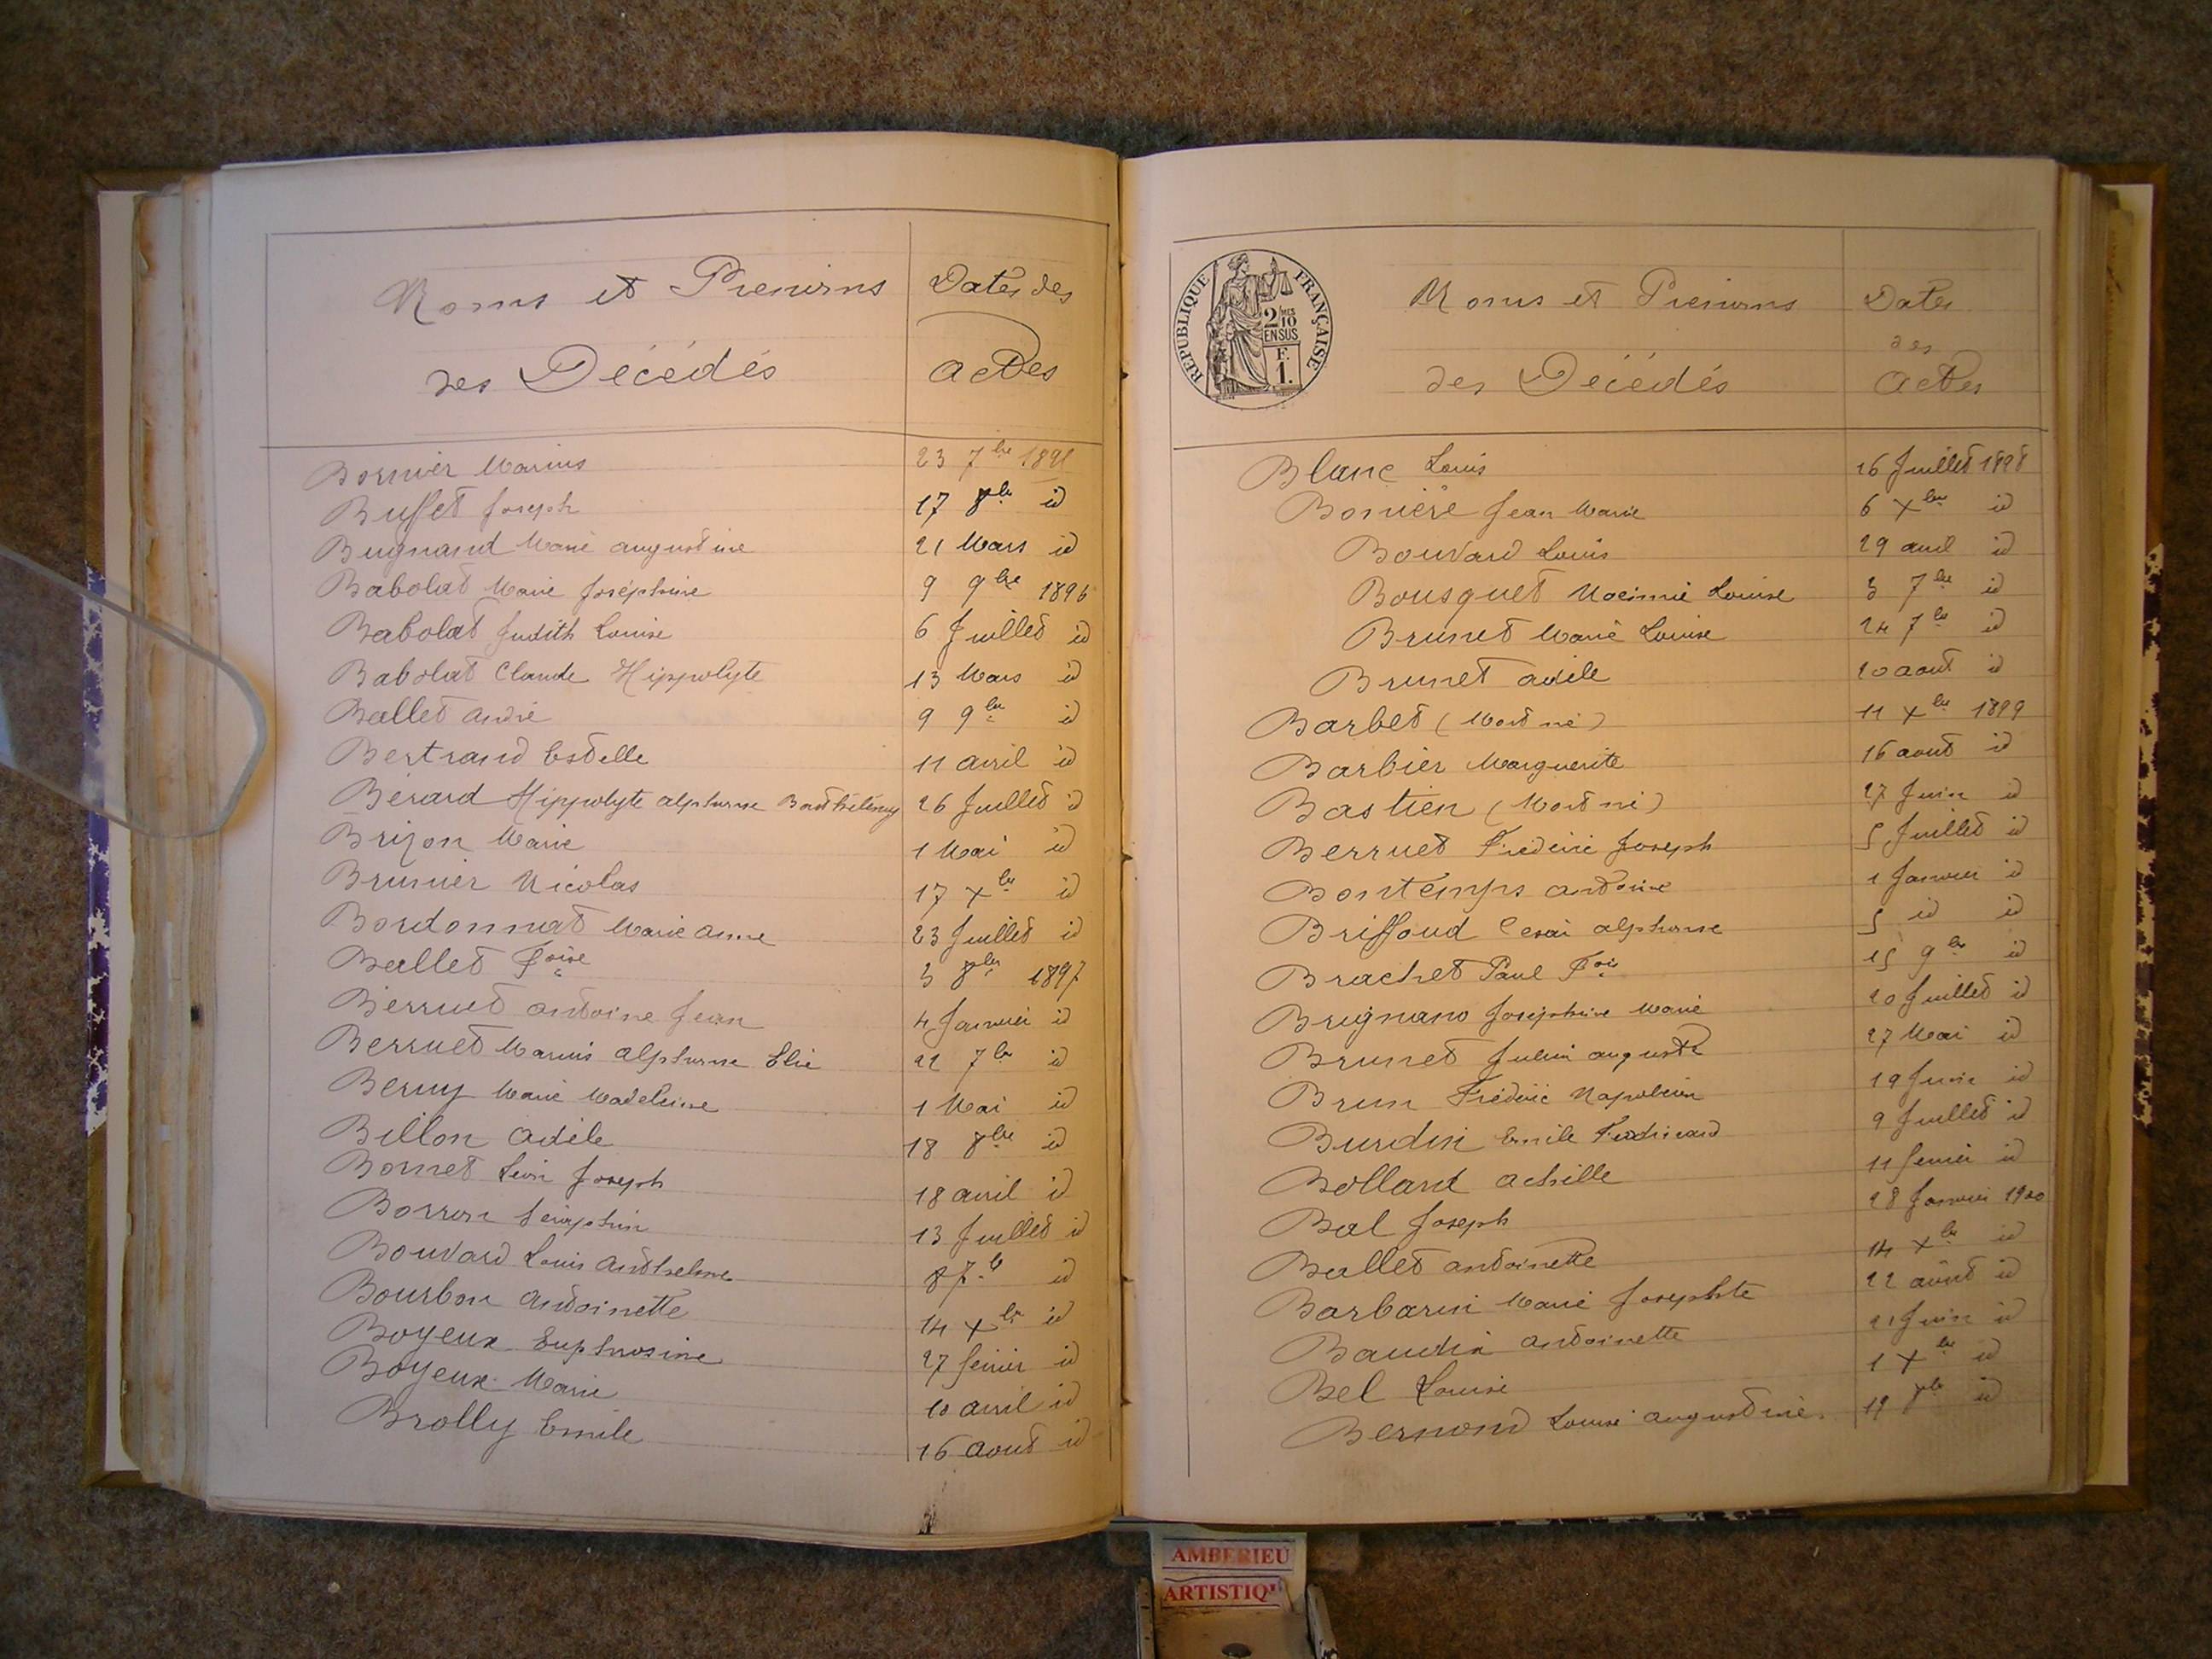 Noms et Prenoms
des Décédés
Dates des
actes
Bornier Marius 23 7bre
Buffet Joseph 17 8bre id
Bugnand Marie augustine 21 Mars id
Babolat Marie Joséphine 9 9bre 1896
Babolat Judith Louise 6 Juillet id
Babolat Claude Hippolyte 13 Mars id
Ballet andré 9 9bre id
Bertrand Estelle 11 avril id
Bérard Hippolyte alphonse Barthélémy 26 Juillet id
Brizon Marie 1 Mai id
Brunier Nicolas 17 Xbre id
Bordonnat Marie anne 23 Juillet id
Ballet Foise 3 8bre 1897
Berruet antoine Jean 4 Janvier id
Berruet Marius alphonse Elie 22 7bre id
Marie Madeleine 1 Mai id
Billon adèle 18 8bre id
Bornet Léon Joseph 18 avril id
Borron Séraphin 13 Juillet id
Bouvard Louis anthelme 8 7bre id
Bourbon antoinette 14 Xbre id
Boyeux Euphrosine 27 février id
Boyeux Marie 10 avril id
Brolly Emile 16 aout id
REPUBLIQUE FRANÇAISE
2/10 MES
EN SUS
F.
1.
Noms et Prenoms
des Décédés
Dates
des
actes
Blanc Louis 26 Juillet 1898
Bonière Jean Marie 6 Xbre id
Bouvard Louis 29 avril id
Bousquet Noeimie Louise 3 7bre id
Brunet Marie Louise 24 7bre id
Brunet adèle 20 aout id
Barbet (Mort né) 11 Xbre 1899
Barbier Marguerite 16 aout id
Bastien (Mort né) 27 Juin id
Berruet Fréderic Joseph 5 Juillet id
Bontemps antoine 1 Janvier id
Briffoud alphonse 5 id id
Brachet Paul Fois 15 9bre id
Joséphine Marie 20 Juillet id
Brunet Julien auguste 27 Mai id
Brun Fréderic Napoléon 19 Juin id
Burdin Emile Ferdinand 9 Juillet id
Bolland achille 11 fevrier id
Bal Joseph 28 Janvier 1900
Ballet antoinette 14 Xbre id
Barbarin Marie Josephte 22 aout id
Baudin antoinette 21 Juin id
Bel Louise 1 Xbre id
Bernond Louise augustine 19 id
AMBERIEU
ARTISTIQ